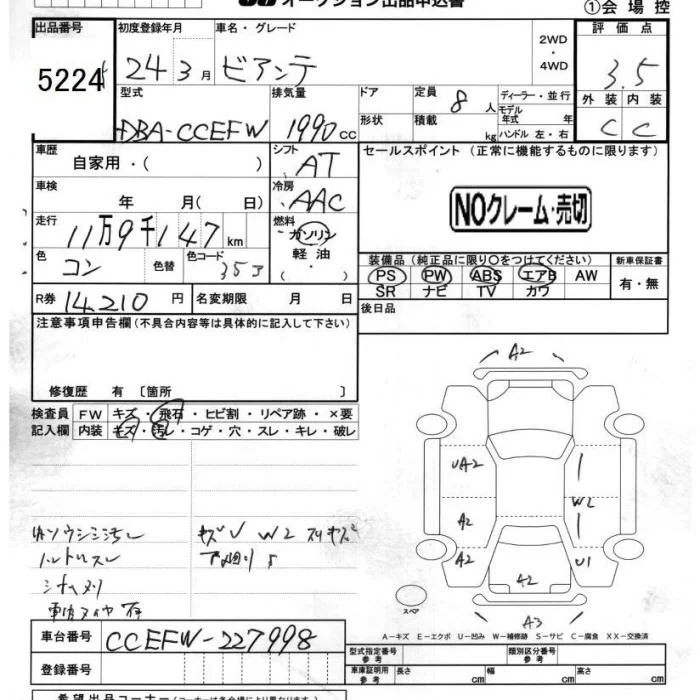 オークション出品申込書
①会場控
出品番号 初度登録年月 車名・グレード 2WD・4WD 評価点
5224 24 3月 ビアンテ 3.5
型式 排気量 ドア 定員 8人 ディーラー・並行 外装 内装
DBA-CCEFW 1990cc 形状 積載 kg モデル年式 年 ハンドル 左・右 C C
車歴 自家用・( ) シフト AT セールスポイント (正常に機能するものに限ります)
車検 年 月( 日) 冷房 AAC
NOクレーム・売切
走行 11万9千147km 燃料 ガソリン・軽油 ( ・ )
色 コン 色替 色コード 35J
装備品 (純正品に限り○をつけてください) 新車保証書
PS PW ABS エアB AW 有・無
SR ナビ TV カワ
R券 14,210円 名変期限 月 日 後日品
注意事項申告欄 (不具合内容等は具体的に記入して下さい)
修復歴 有 〔箇所 〕
検査員 FW キズ・飛石・ヒビ割・リペア跡・×要
記入欄 内装 キズ・汚レ・コゲ・穴・スレ・キレ・破レ
A2
UA2
W2
A2
A2 U1
A2
スペア
A3
キズ W2
A-キズ E-エクボ U-凹み W-補修跡 S-サビ C-腐食 XX-交換済
車台番号 CCEFW-227998
型式指定番号 参考 類別区分番号 参考
登録番号
車庫証明用 参考 長さ cm 幅 cm 高さ cm
希望出品コーナー